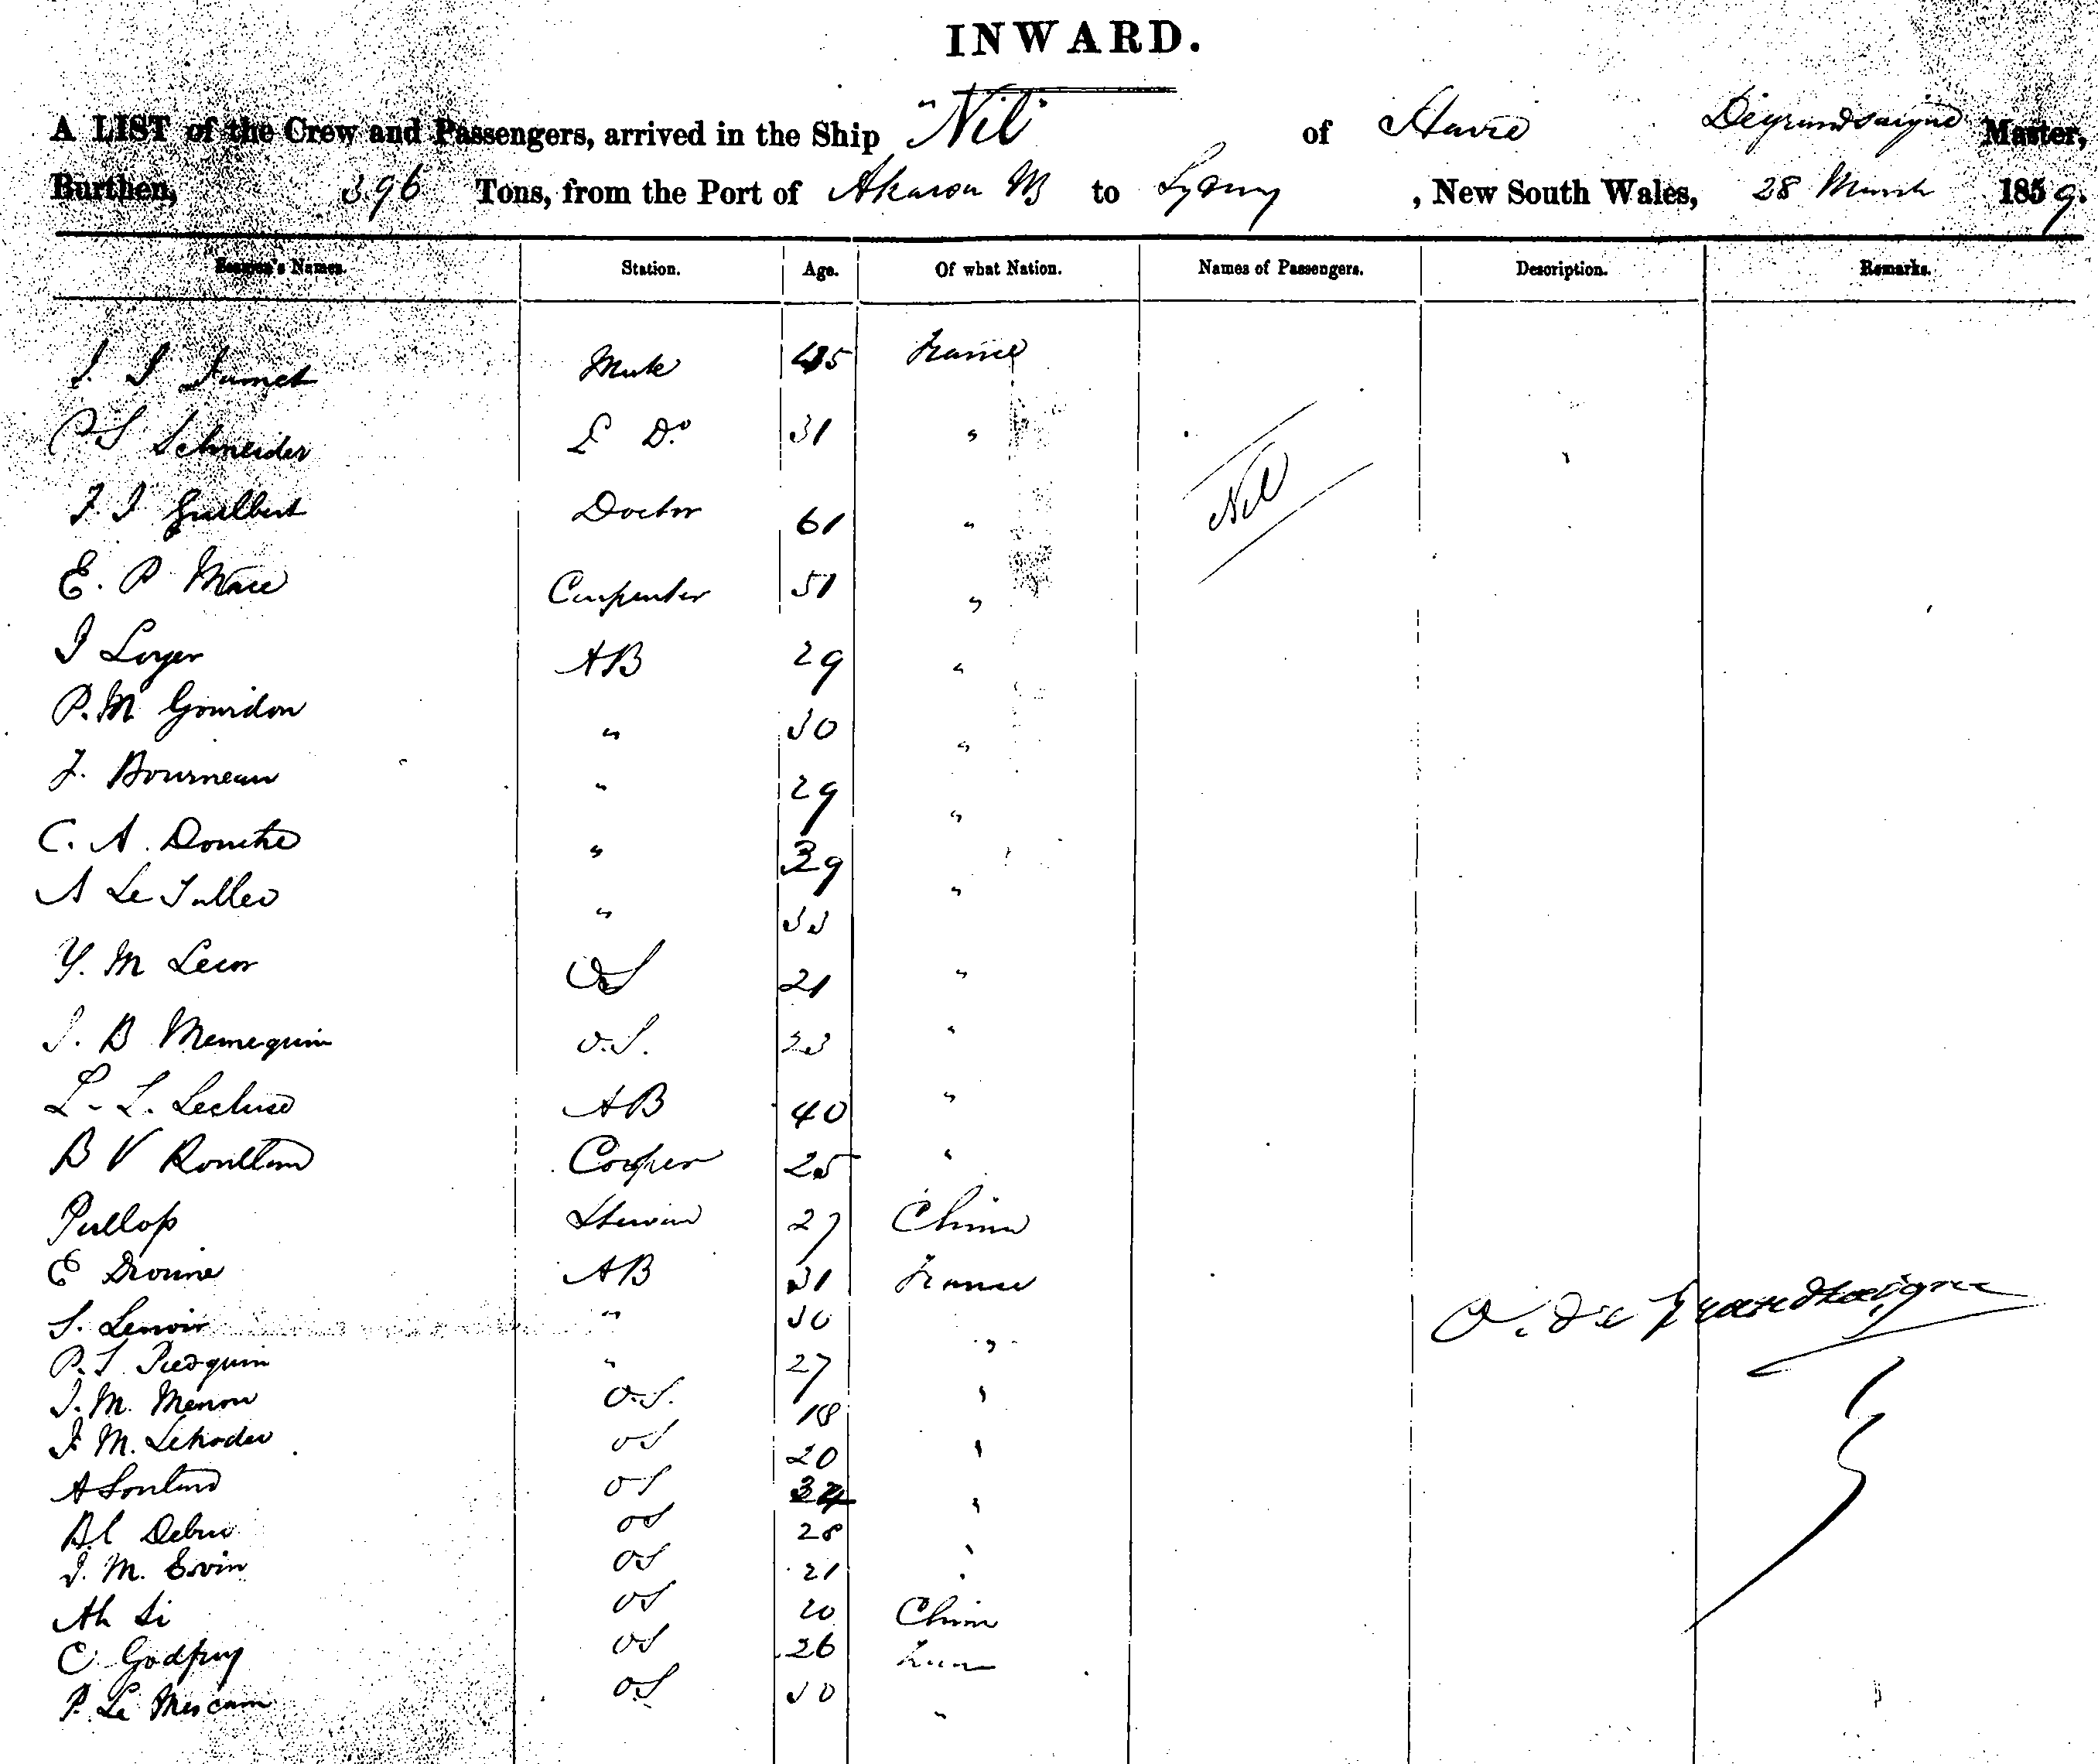 INWARD.
A LIST of the Crew and Passengers, arrived in the Ship "Nil" of Havre Degrandsaigne Master,
Burthen, 396 Tons, from the Port of Akaroa to Sydney, New South Wales, 28 March 1859.
Seamen's Names. Station. Age. Of what Nation. Names of Passengers. Description. Remarks.
J. J Jamet Mate 45 France
P S Schneider 2 Do 31 "
F. J Guilbert Doctor 61 " Nil
E. P Mace Carpenter 51 "
J Loyer AB 29 "
P. M Gourdon " 30 "
F. Bourneau " 29 "
C. A. Douche " 39 "
A Le " 33 "
Y. M Lecor OS 21 "
J. B Memeguin O.S. 23 "
L. L. Lecluse AB 40 "
B V Cooper 25 "
Pullop Steward 27 China
E Drouine AB 31 France
S. Lenoir " 30 "
P. S. " 27
J. M. Menou O.S. 18 "
J. M. OS 20 "
A OS "
B. C Debru OS 28 "
J. M. Ervin OS 21 "
Ah Li OS 20 China
C Godfrey OS 26 France
P. Le Mescam O.S 30 "
O. de Grandsaigne